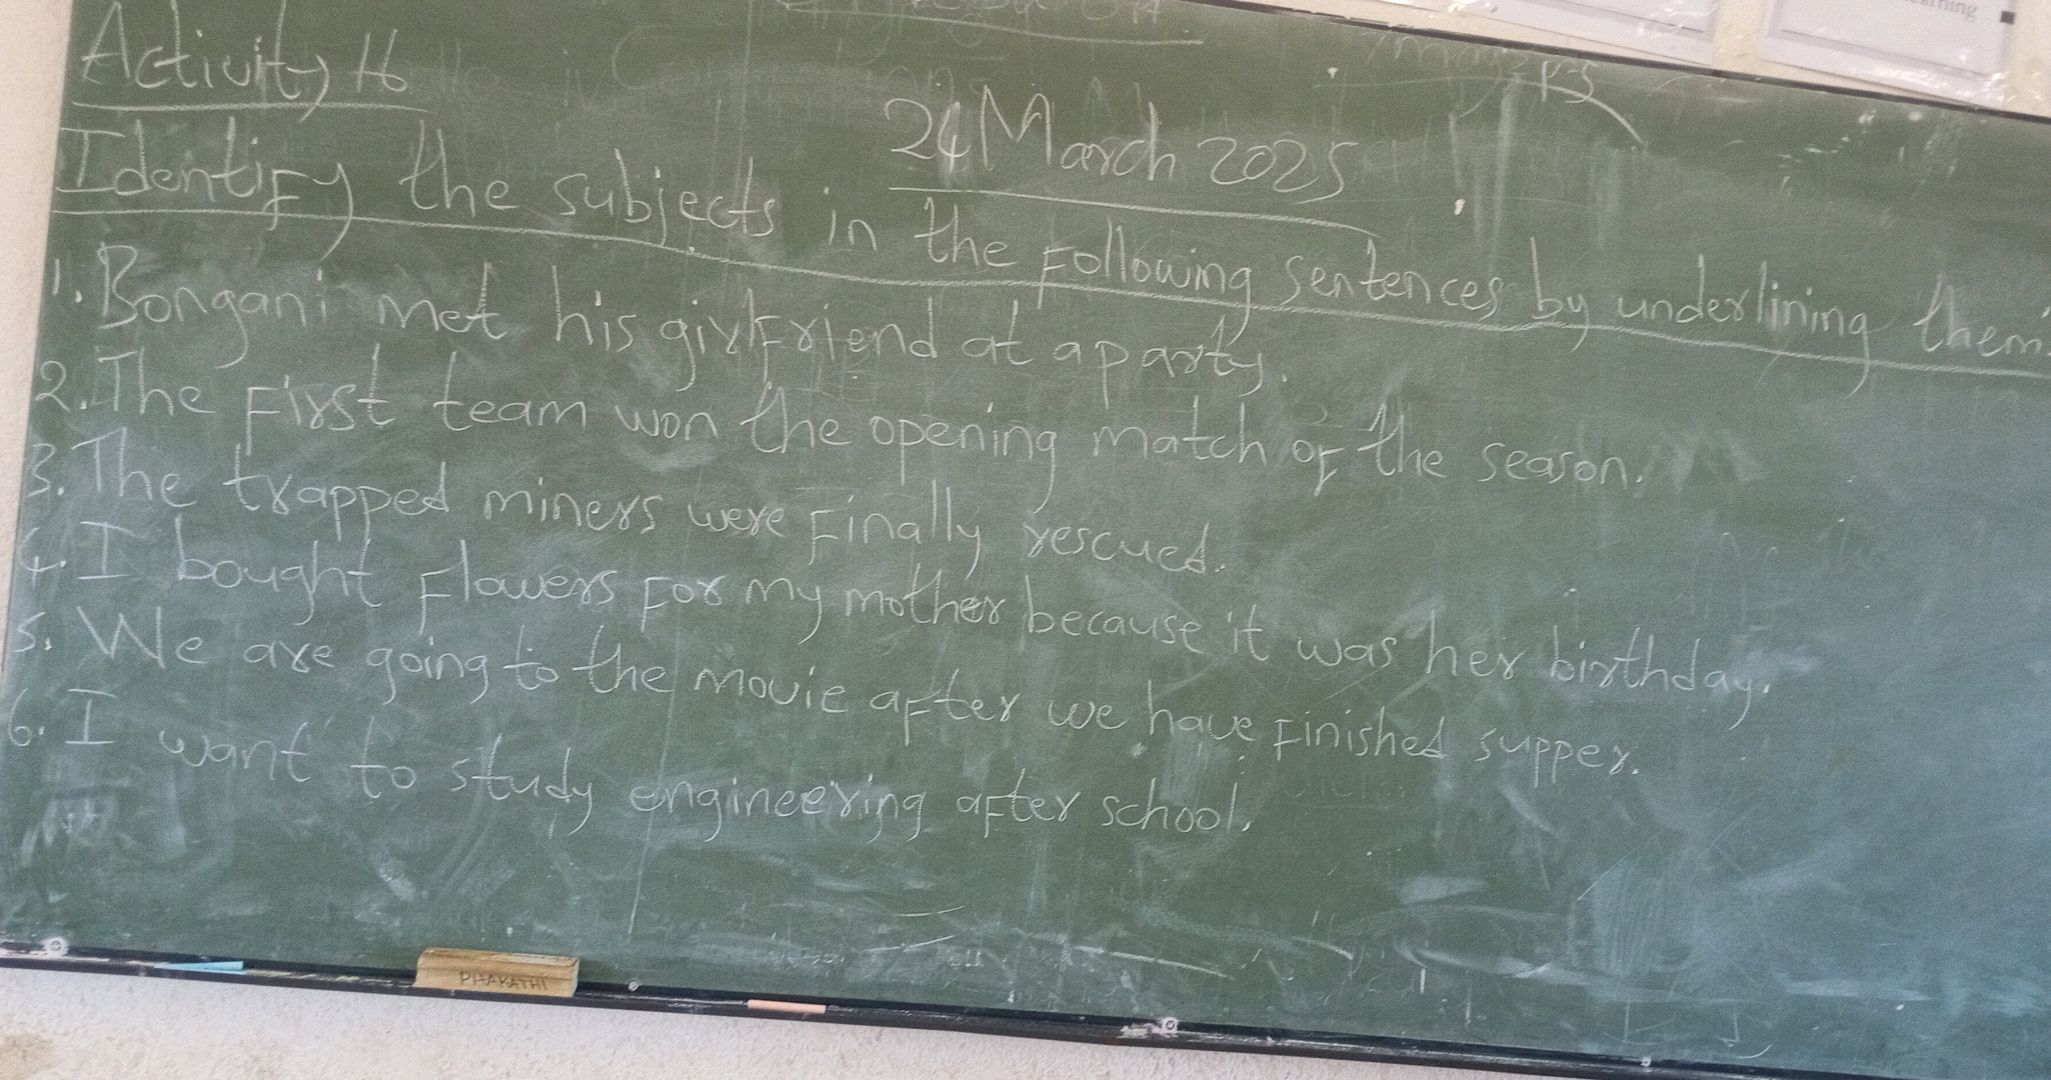 Activity 16
24 March 2025
Identify the subjects in the following sentences by underlining them.
1. Bongani met his girlfriend at a party.
2. The first team won the opening match of the season.
3. The trapped miners were finally rescued.
4. I bought flowers for my mother because it was her birthday.
5. We are going to the movie after we have finished supper.
6. I want to study engineering after school.
PHAKATHI